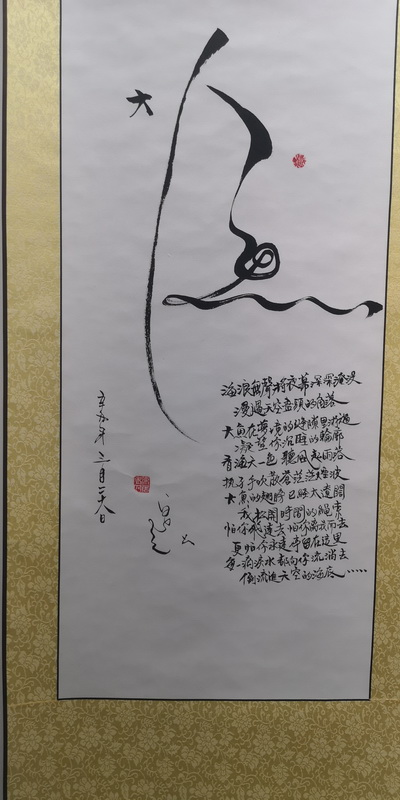 大
鱼
海浪無聲將夜幕深深淹没
漫過天空盡頭的角落
大鱼在夢境的縫隙里游過
凝望你沉睡的輪廓
看海天一色 聽風起雨落
执子手吹散蒼茫茫煙波
大鱼的翅膀已經太遼闊
我松開時間的繩索
怕你飛遠去怕你離我而去
更怕你永遠停留在這里
每一滴淚水都向你流淌去
倒流進天空的海底……
辛丑年二月二六日